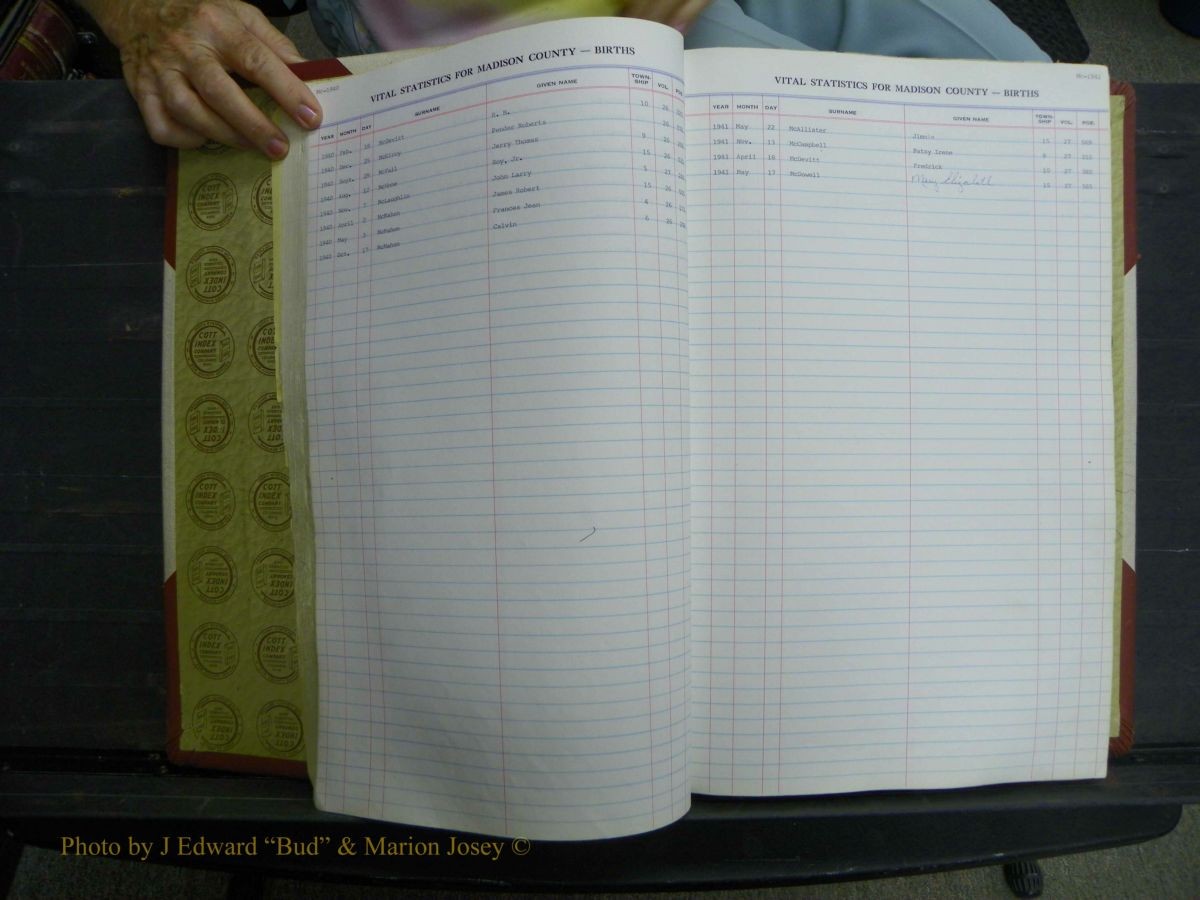 Mc-1940
VITAL STATISTICS FOR MADISON COUNTY — BIRTHS
YEAR MONTH DAY SURNAME GIVEN NAME TOWN-SHIP VOL. PGE.
1940 Feb. 16 McDevitt R. R. 10 26
1940 Dec. McElroy Pender Roberts 26
1940 Sept. McFall Jerry Thomas 9 26
1940 Aug. 12 Roy, Jr. 15 26
1940 Nov. McLaughlin John Larry 27
1940 April 2 McMahan James Robert 15 26
1940 May 3 McMahan Frances Jean 4 26
1940 Oct. 17 McMahan Calvin 6 26
Mc-1941
VITAL STATISTICS FOR MADISON COUNTY — BIRTHS
YEAR MONTH DAY SURNAME GIVEN NAME TOWN-SHIP VOL. PGE.
1941 May 22 McAllister Jimmie 15 27
1941 Nov. 13 McCampbell Patsy Irene 27
1941 April 18 McDevitt Fredrick 10 27
1941 May 17 McDowell Mary Elizabeth 15 27
COTT INDEX COMPANY
Photo by J Edward “Bud” & Marion Josey ©